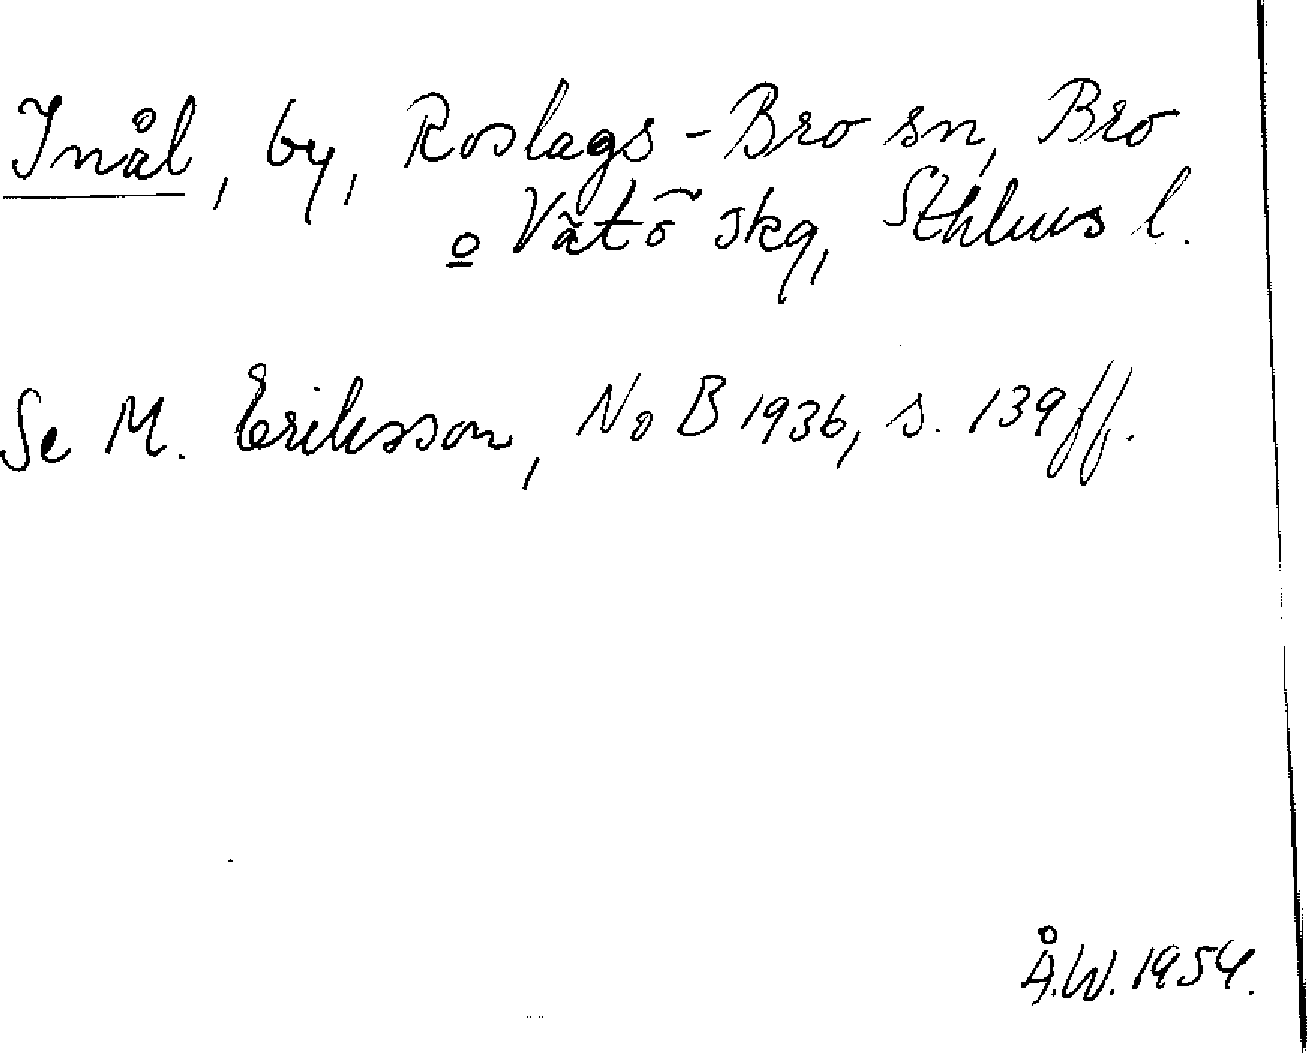 Inål, by, Roslags-Bro sn, Bro
o Vätö skg, Sthlms l.
Se M. Eriksson, NoB 1936, s. 139 ff.
Å.W. 1954.